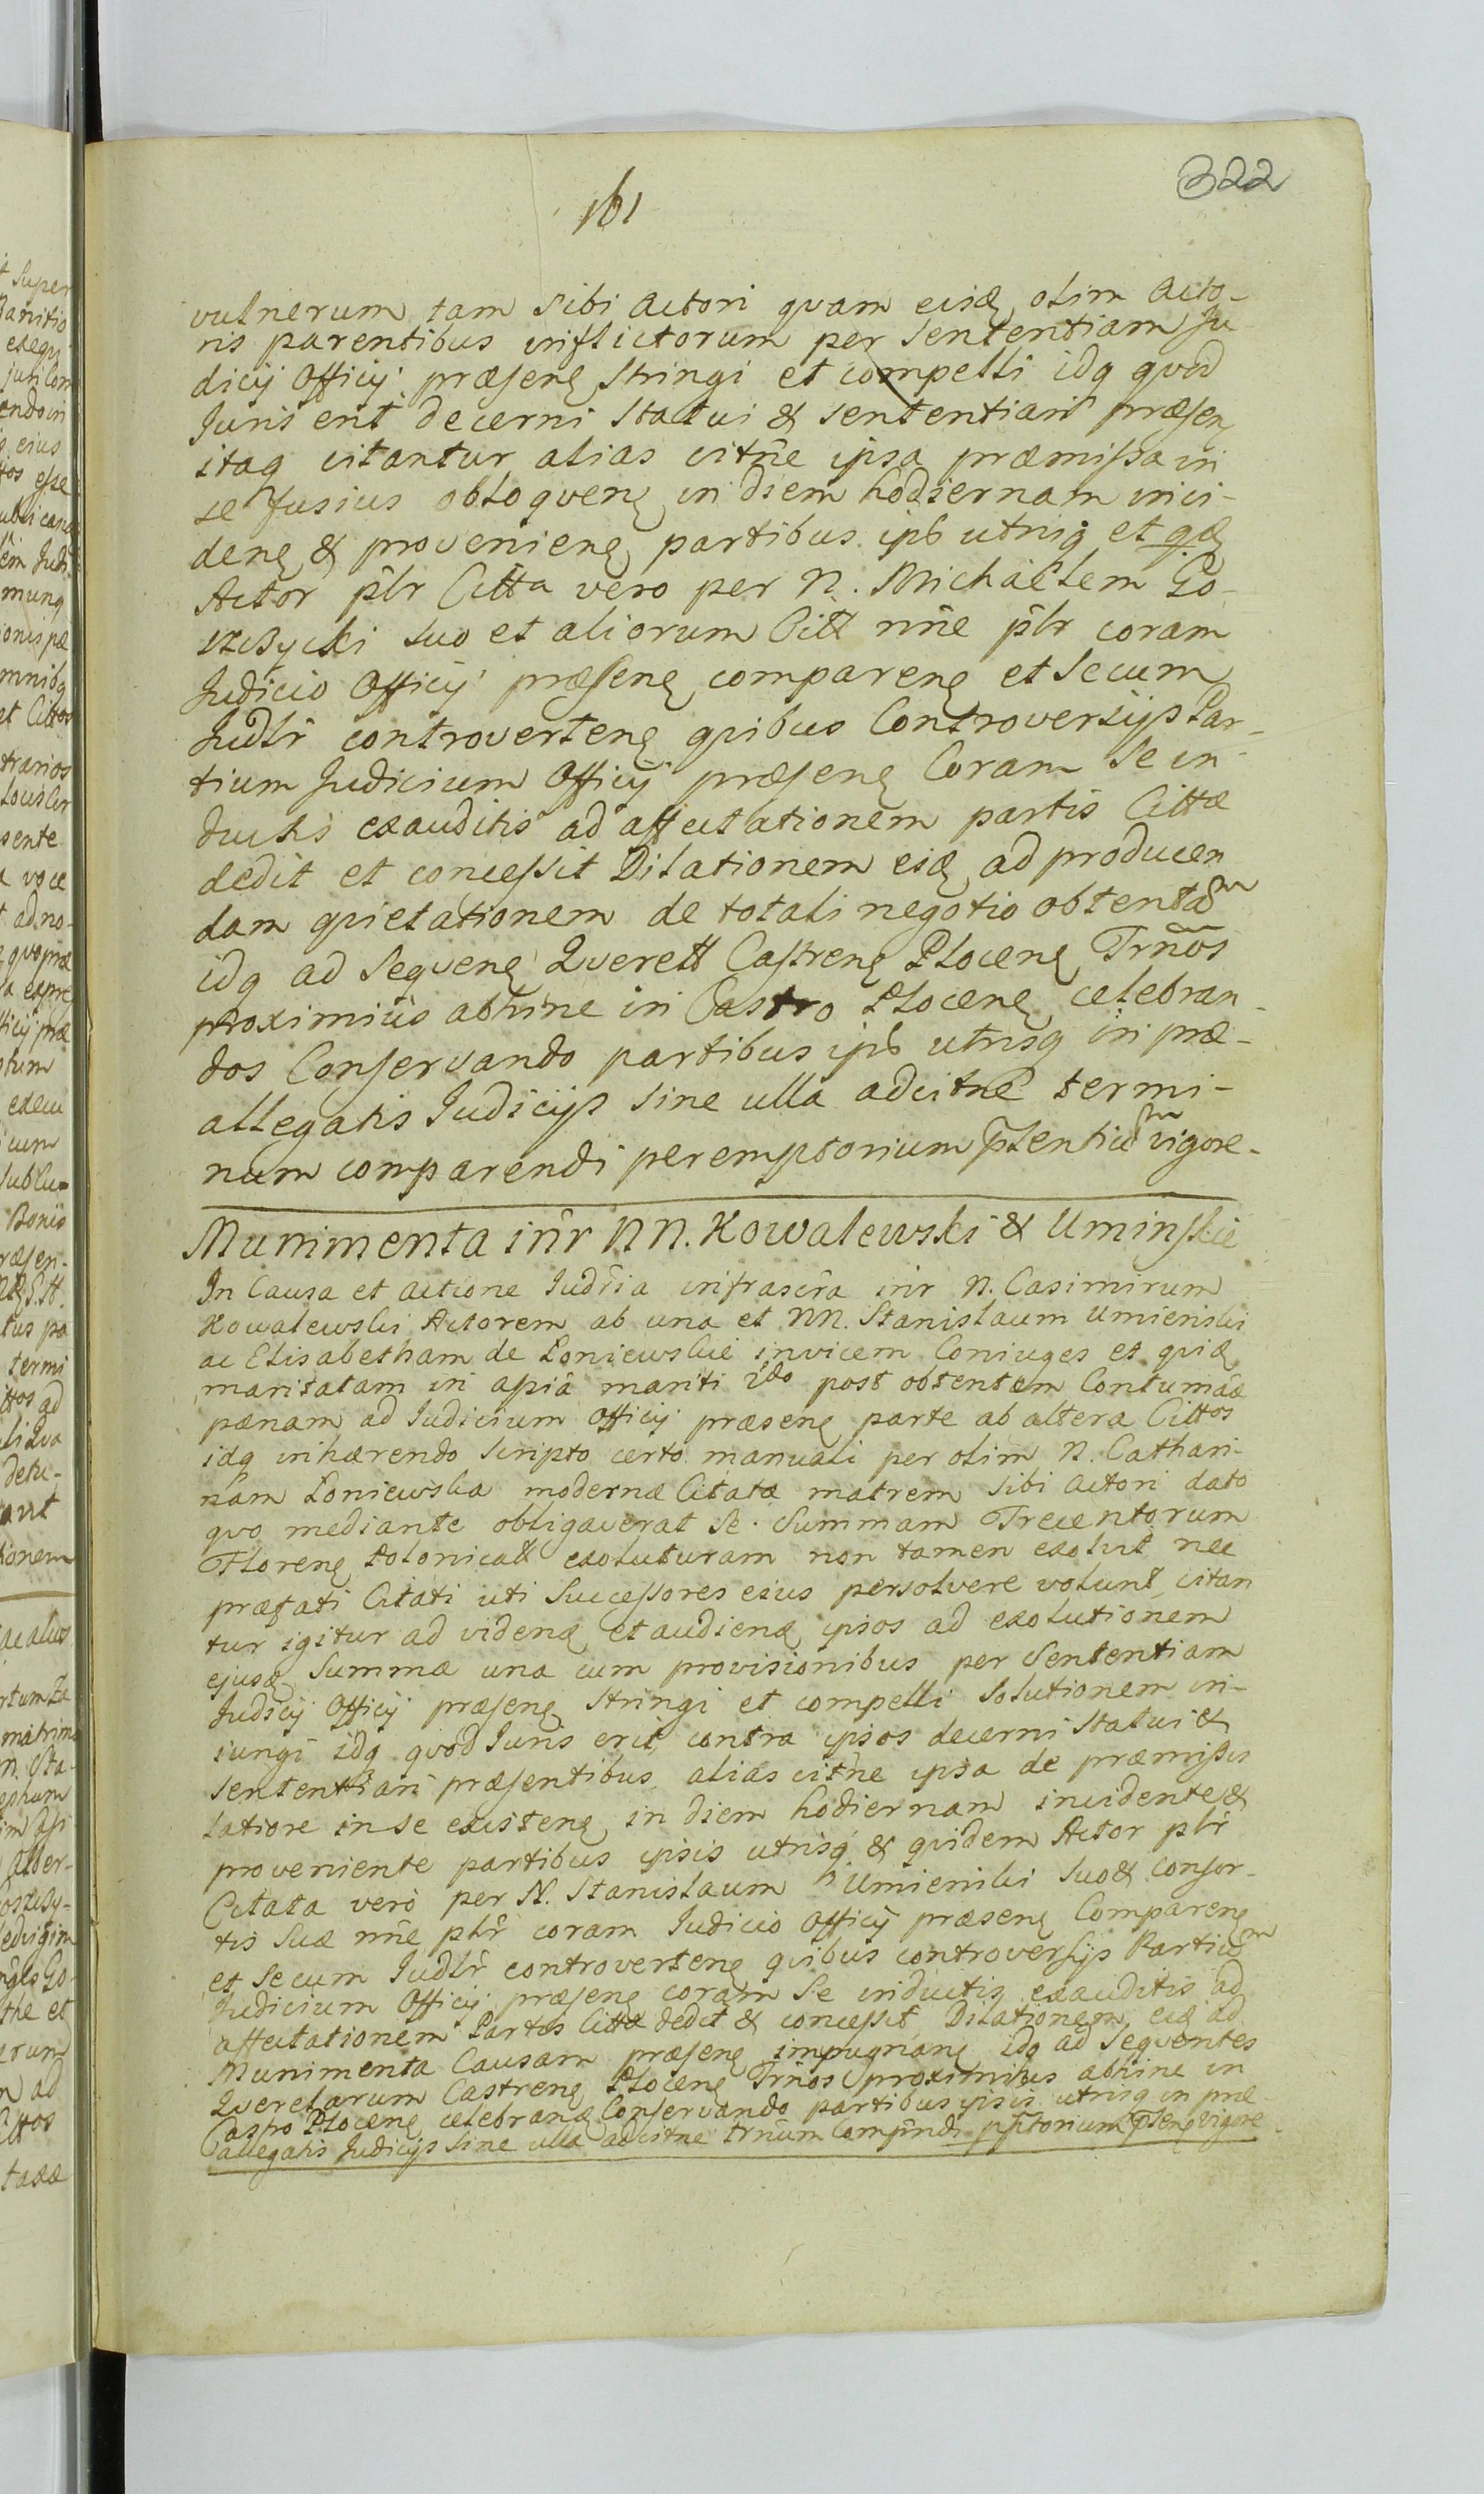 161
322
vulnerum tam sibi Actori quam eisd olim Acto-
ris parentibus inflictorum per Sententiam Ju
dicij Officij præsenɇ stringi et compelli idq quod
Juris erit decerni statui & sententiari præsen
itaq citantur alias citñe ipsa præmissa in
se fusius obloquenɇ in diem hodiernam inci-
denɇ & provenienɇ partibus ipis utrisq et qdɇ
Actor p̃lr Citta vero per N. Michaëlem Go-
szczycki suo et aliorum Citt nñe p̃lr coram
Judicio Officij præsenɇ comparenɇ et secum
Judlr̃ controvertenɇ quibus Controversijs Par-
tium Judicium Officij præsenɇ Coram Se in
ductis exauditis ad affectationem partis Cittæ
dedit et concessit Dilationem eisd ad producen
dam quietationem de totali negotio obtentam
idq ad Sequenɇ Querell Castrenɇ Plocenɇ Trños
proximius abhinc in Castro Plocenɇ celebran-
dos Conservando partibus ipis utrisq in præ-
allegatis Judicijs sine ulla adcitñe termi-
num comparendi peremptorium p̃sentium vigore.
Munimenta inr̃ NN. Kowalewski & Uminskie
In Causa et actione Judr̃ia infrascr̃a inr̃ N. Casimirum
Kowalewski Actorem ab una et NN. Stanislaum Umienski
ac Elisabetham de Loniewskie invicem Coniuges et quid
maritatam in assã mariti 2do post obtentam Contumaæ
pænam ad Judicium Officij præsenɇ parte ab altera Cittos
idq inhærendo scripto certo manuali per olim N. Cathari-
nam Loniewska modernæ Citatæ matrem sibi Actori dato
quo mediante obligaverat se Summam Trecentorum
Florenɇ Polonicall exoluturam non tamen exoluit nec
præfati Citati uti Successores eius persolvere volunt citan
tur igitur ad videnɇ et audienɇ ipsos ad exolutionem
ejusd Summæ una cum provisionibus per Sententiam
Judicij Officij præsenɇ stringi et compelli solutionem in-
iungi idq quod Juris erit contra ipsos decerni statui &
sententiari præsentibus alias citñe ipsa de præmissis
latiore in se existenɇ in diem hodiernam incidente &
proveniente partibus ipsis utrisq & quidem Actor plr̃
Citata vero per N. Stanislaum Umienski suo & consor-
tis suæ nñe plr̃ coram Judicio Officij præsenɇ Comparenɇ
et Secum Judlr̃ controvertenɇ quibus controversijs Partium
Judicium Officij præsenɇ coram Se inductis exauditis ad
affectationem Partis Cittæ dedit & concessit Dilationem eid ad
Munimenta Causam præsenɇ impugnanɇ idq ad Sequentes
Querelarum Castrenɇ Plocenɇ Trños proximius abhinc in
Castro Plocenɇ celebranɇ Conservando partibus ipsis utrisq in præ
allegatis Judicijs sine ulla adcitñe trñum Compr̃ndi pptorium p̃senɇ vigore